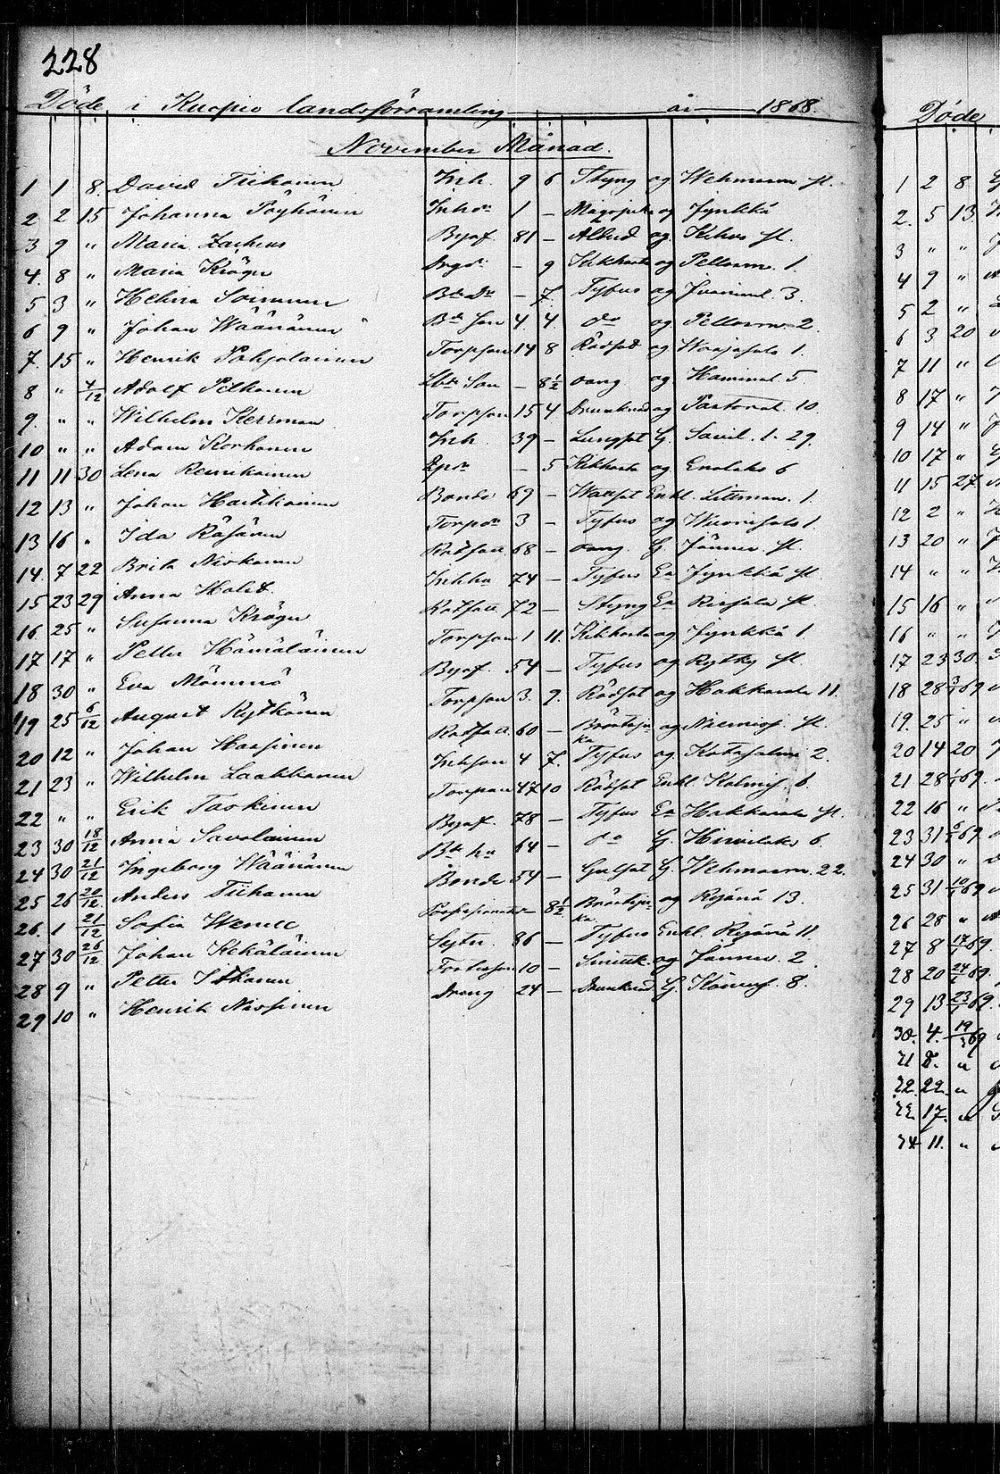 228
Döde i Kuopio landsförsamling år 1868.
November Månad.
1 1 8. David Tiihonen Inh. 9 6 Styng og Wehmasm. sl.
2. 2 15 Johanna Pöyhönen Inhdr 1 — Magsjuka og Jynkkä
3 9 " Maria Zachæus Bysf. 81 — Ålderd og Kehvo sl.
4. 8 " Maria Kröger Drgdr. — 9 Kikhosta og Pellosm. 1.
5 3 " Helena Soininen Bdedr — 7. Tyfus og Jvarinml. 3.
6 9 " Johan Wäänänen Bde Son 4 4 do og Pellosm. 2.
7. 15 " Henrik Pohjolainen Torpson 14 8 Rödsot og Waajasalo 1.
8 " 4/12 Adolf Pitkänen Lbde Son — 8 1/2 oang og Haminal 5.
9. " " Wilhelm Kerrman Torpson 15 4 Drunknad og Pastorat. 10
10 " " Adam Korhonen Inh. 39 — Lungsot G. Savil. 1. 29.
11 11 30 Lena Reinikainen Tpdr — 5 Kikhosta og Enolaks 6
12 13 " Johan Hartikainen Bonde 69 — Wattsot Enkl. Litmann. 1.
13 16 " Ida Räsänen Torpdr 3 — Tyfus og Wuorisalo 1.
14. 7 22 Brita Niskanen Rotfatt 68 — oang. G. Jännev. sl.
15 23 29 Anna Holst. Inhha 74 — Tyfus Ea Jynkkä sl
16 25 " Susanna Kröger Rotfatt 72 — Styng Ea Rissala sl
17 17 " Petter Hämäläinen Torpson 1 11. Kikhosta og Jynkkä 1
18 30 " Eva Mömmö Bysf. 54 — Tyfus og Rytky sl.
19 25 6/12 August Rytkönen Torpson 3. 9. Rödsot og Hakkarala 11.
20 12 " Johan Hassinen Rotfatt 60 — Bröstsjuka og Niemisj. sl.
21 23 " Wilhelm Laakkonen Inhson 4 7. Tyfus og Kotasalmi 2.
22 " " Erik Toskinen Torpare 47 10 Rödsot Enkl. Kolmis. 6.
23 30 18/12 Anna Savolainen Bysf. 78 — Tyfus Ea Hakkarala sl.
24 30 21/12 Ingeborg Wäänänen Bde ha 64 — do G. Hirvilaks 6.
25 26 20/12 Anders Tiihonen Bonde 54 — Gulsot G. Wehmasm. 22.
26. 1 21/12 Sofia Wenell 8 1/2 Bröstsjuka og Röjänä 13.
27 30 26/12 Johan Kekäläinen Sytn. 86 — Tyfus Enkl. Röjänä 11.
28 9 " Petter Itkonen 10 — og Jännev. 2.
29 10 " Henrik Nissinen Dräng 24 — Drunknad G. 8.
Döde
1 2 8
2. 5 13
3 " "
4 9 "
5 2 "
6 3 20
7 11 "
8 17 "
9 14 "
10 17 "
11 15 27
12 2 "
13 20 "
14 " "
15 16 "
16 " "
17 23 30.
18 28 3/1 69
19. 25 "
20 14 20
21 28 1/1 69.
22 16 "
23 31 6/1 69
24 30 "
25 31 10/1 69
26 28 "
27 8 17/1 69.
28 20 24/1 69.
29 13 23/1 69.
30. 4. 19/3 69
31 8. "
32. 22. "
33. 17. "
34 11. "